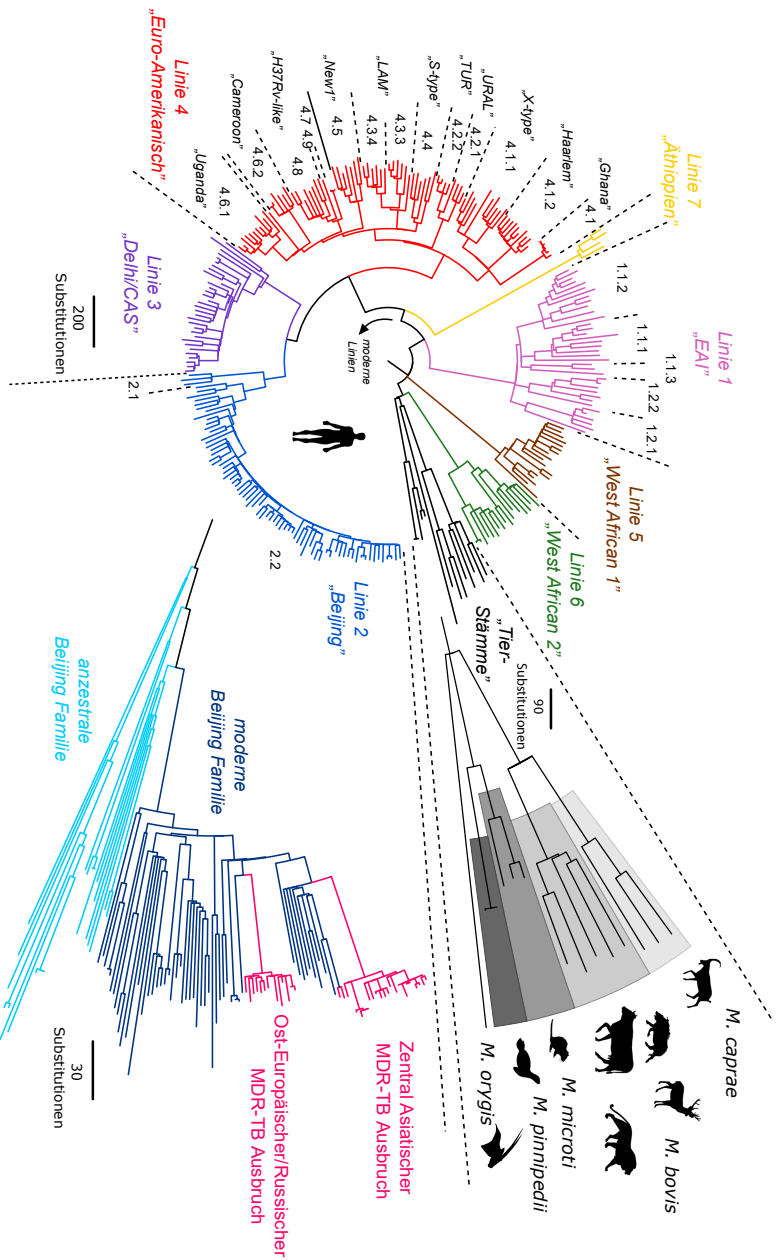 Linie 4
„Euro-Amerikanisch”
„Uganda”
4.6.1
„Cameroon”
4.6.2
„H37Rv-like”
4.8
4.7
4.9
„New1”
4.5
„LAM”
4.3.4
4.3.3
„S-type”
4.4
„TUR”
4.2.2
„URAL”
4.2.1
„X-type”
4.1.1
„Haarlem”
4.1.2
„Ghana”
4.1
Linie 7
„Äthiopien”
Linie 1
„EAI”
1.1.2
1.1.1
1.1.3
1.2.2
1.2.1
Linie 5
„West African 1”
Linie 6
„West African 2”
„Tier-
Stämme”
moderne
Linien
Linie 3
„Delhi/CAS”
200
Substitutionen
2.1
2.2
Linie 2
„Beijing”
90
Substitutionen
M. caprae
M. bovis
M. microti
M. pinnipedii
M. orygis
anzestrale
Beiijing Familie
moderne
Beiijing Familie
Zentral Asiatischer
MDR-TB Ausbruch
Ost-Europäischer/Russischer
MDR-TB Ausbruch
30
Substitutionen